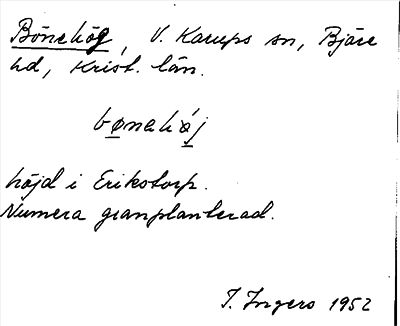 Bönehög, V. Karups sn, Bjäre
hd, Krist. län.
bønehǿj
höjd i Erikstorp.
Numera granplanterad.
I. Ingers 1952